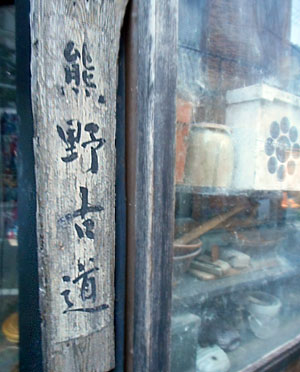 熊野古道